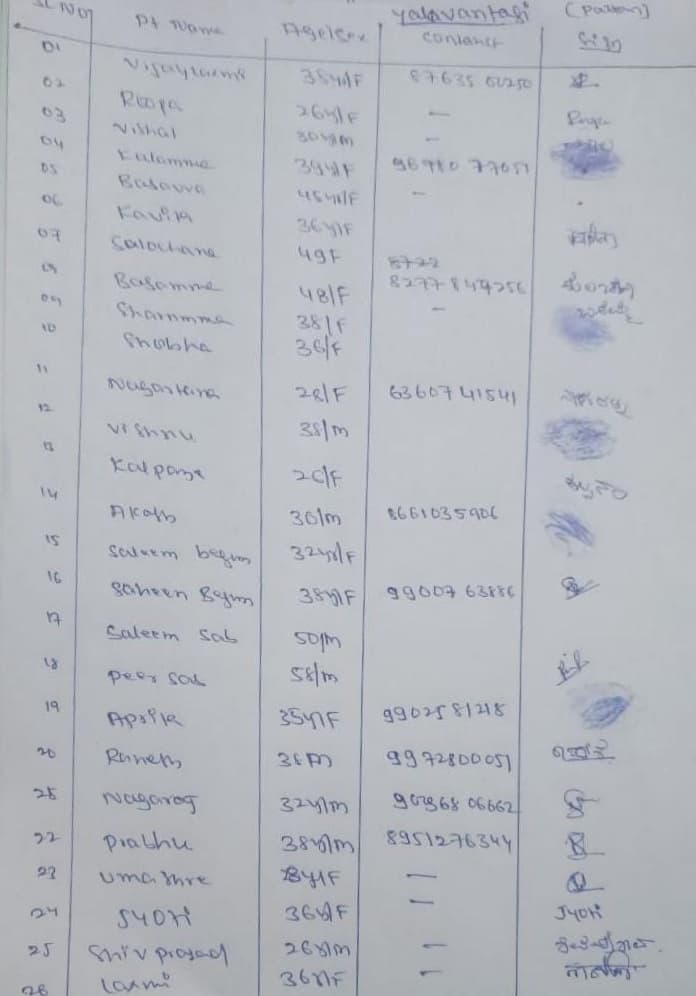 Sl No Pt Name Age/Sex yalavantagi contanct (Patan) Sign
01 Vijaylaxmi 38y/F
02 Roopa 26y/F — Roopa
03 Vishal 30y/m —
04 Kalamma 39y/F 96980 77051
05 Basavva 45y/F —
06 Kavita 36y/F
07 Salochana 49F 8722
08 Basamma 48/F 8277849256
09 Shamma 38/F —
10 Shobha 36/F
11 Nagarthna 28/F 6360741541
12 Vishnu 38/m
13 Kalpana 26/F
14 Akash 30/m 8661035906
15 Saleem begum 32y/F
16 Saheen Begum 38y/F 99007 63886
17 Saleem sab 50/m
18 peer sab 58/m
19 35y/F 9902581218
20 38 m 9972800051
Nagaraj 32y/m 90368 06662
22 prabhu 38y/m 8951276344
23 Umashre —
24 JYOti 36y/F — JYOti
25 Shivprasad 26y/m —
26 Laxmi 36y/F —